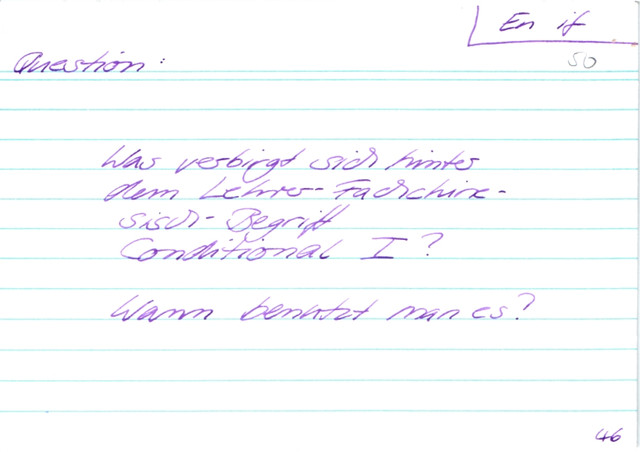 En if
50
Question:
Was verbirgt sich hinter
dem Lehrer-Fachchine-
sisch-Begriff
Conditional I?
Wann benutzt man es?
46